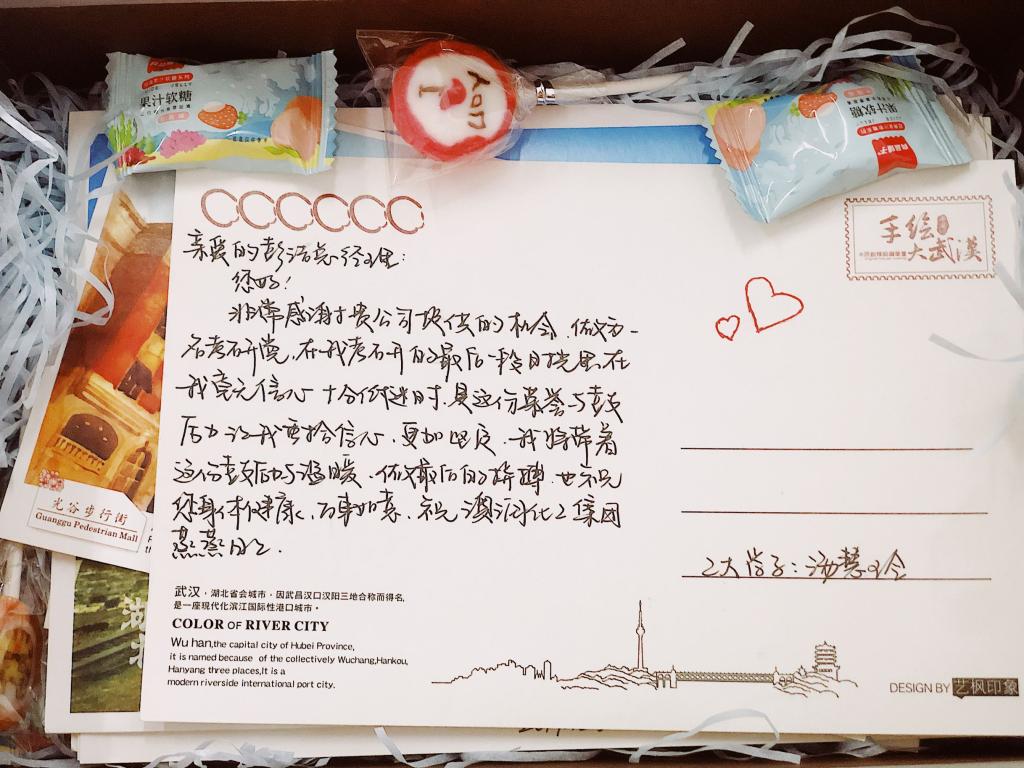 果汁软糖
I
YOU
果汁软糖
手绘
大武漢
亲爱的彭浩总经理:
您好!
非常感谢贵公司提供的机会,做为一
名考研党,在我考研的最后阶段,在
我毫无信心 十分低迷时,是这份荣誉与鼓
励让我重拾信心,更加坚定,我将带着
这份鼓励与温暖,做最后的，也祝
您身体健康,万事如意,祝澳河化工集团
蒸蒸日上.
工大学子:汤慧
光谷步行街
Guanggu Pedestrian Mall
武汉，湖北省会城市，因武昌汉口汉阳三地合称而得名,
是一座现代化滨江国际性港口城市。
COLOR OF RIVER CITY
Wu han,the capital city of Hubei Province,
it is named because of the collectively Wuchang,Hankou,
Hanyang three places,It is a
modern riverside international port city.
DESIGN BY 艺枫印象